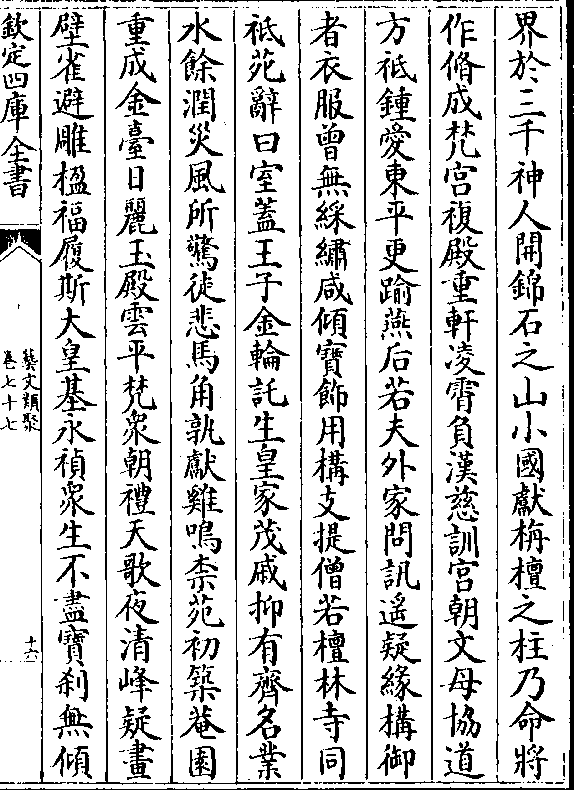 界於三千神人開錦石之山小國獻栴檀之柱乃命將
作脩成梵宫複殿重軒凌霄負漢慈訓宫朝文母協道
方祇鍾愛東平更踰燕后若夫外家問訊遙疑緣構御
者衣服曽無綵繡咸傾寶飾用構支提僧若檀林寺同
祇苑辭曰室蓋王子金輪託生皇家茂戚抑有齊名業
水餘潤災風所驚徒悲馬角孰獻雞鳴柰苑初築菴園
重成金臺日麗玉殿雲平梵衆朝禮天歌夜清峰疑畫
壁雀避雕楹福履斯大皇基永禎衆生不盡寶刹無傾
欽定四庫全書
藝文類聚
卷七十七
十六